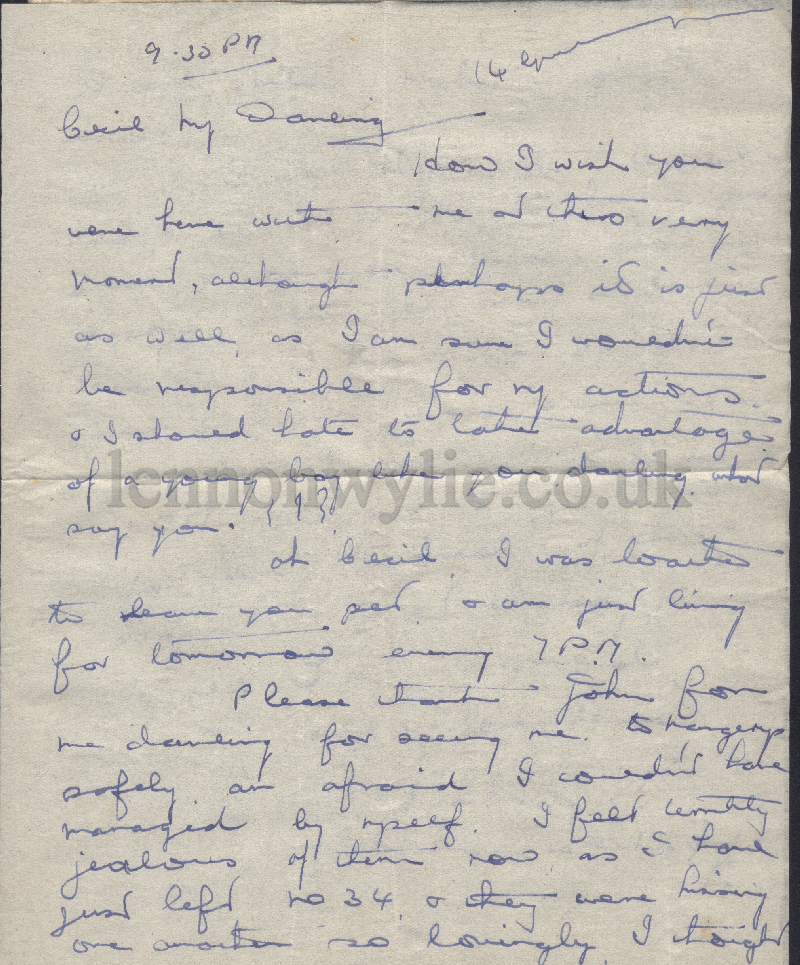 9.30 PM
14
Cecil My Darling
How I wish you
were here with me at this very
moment, although perhaps it is just
as well, as I am sure I wouldn't
be responsible for my actions.
& I should hate to take advantage
of a young boy like you darling. what
say you. {!!}
lennonwylie.co.uk
oh Cecil I was loathe
to leave you pet. & am just living
for tomorrow evening 7 P.M.
Please thank John for
me darling for seeing me. to
safely am afraid I couldn't have
managed by myself. I felt terribly
jealous of them now as I have
just left no 34. & they were kissing
one another so lovingly. I thought